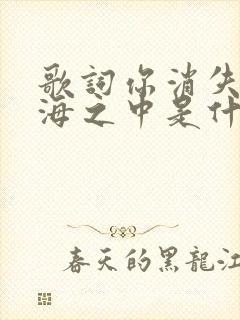 歌詞你消失
海之中是什
春天的黑龍江